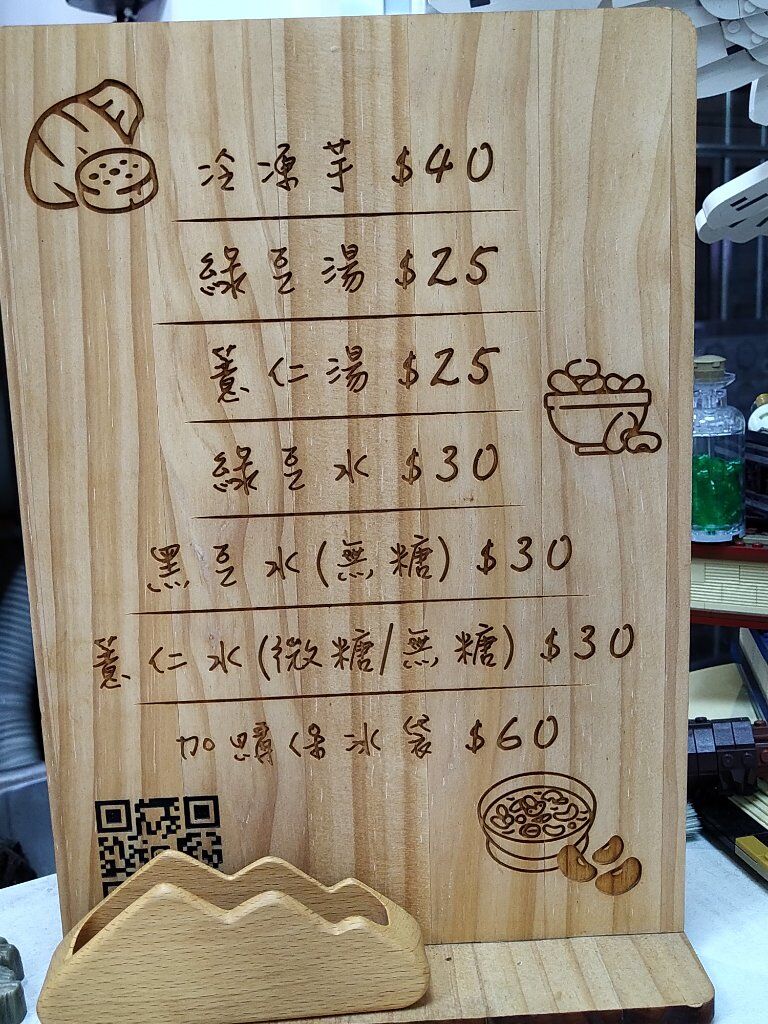 冷凍芋 $40
綠豆湯 $25
薏仁湯 $25
綠豆水 $30
黑豆水(無糖) $30
薏仁水(微糖/無糖) $30
加購保冰袋 $60